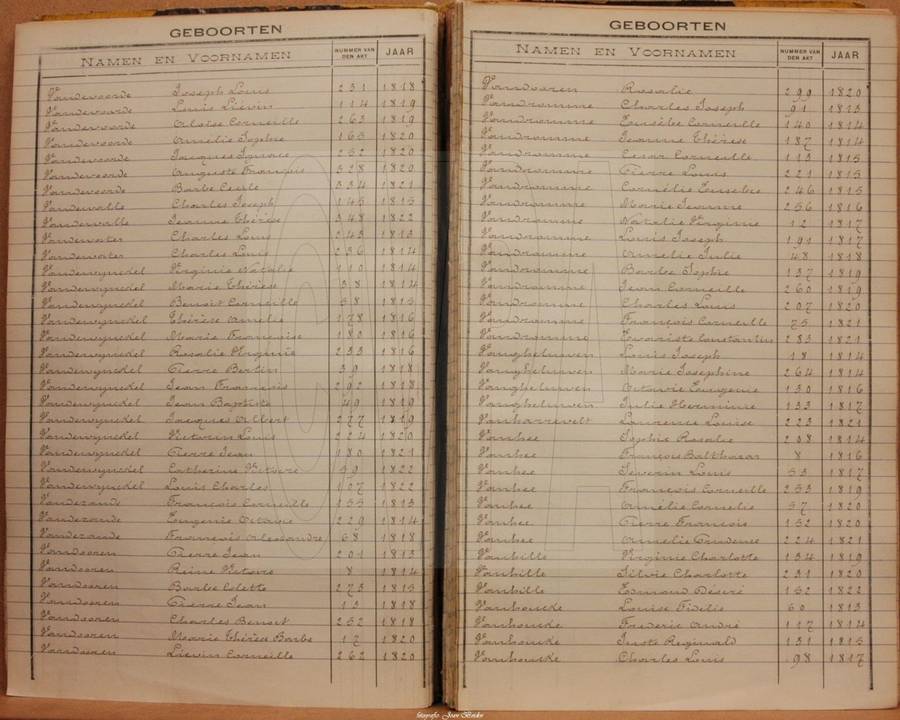 GEBOORTEN
NAMEN EN VOORNAMEN NUMMER VAN DEN AKT JAAR
Vandevoorde Joseph Louis 231 1818
Vandevoorde Louis Liévin 114 1819
Vandevoorde Aloïse Corneille 263 1819
Vandevoorde Amélie Sophie 163 1820
Vandevoorde Jacques Ignace 252 1820
Vandevoorde Auguste François 328 1820
Vandevoorde Barbe Cecile 334 1821
Vandewalle Charles Joseph 145 1815
Vandewalle Jeanne Thérèse 348 1822
Vandewater Charles Louis 243 1813
Vandewater Charles Louis 236 1814
Vandewynckel Virginie Natalie 110 1814
Vandewynckel Marie Thérèse 38 1814
Vandewynckel Benoit Corneille 58 1815
Vandewynckel Thérèse Amelie 178 1816
Vandewynckel Marie Françoise 180 1816
Vandewynckel Rosalie Virginie 233 1816
Vandewynckel Pierre Bertin 39 1818
Vandewynckel Jean François 292 1818
Vandewynckel Jean Baptiste 49 1819
Vandewynckel Jacques Albert 277 1819
Vandewynckel Victorin Louis 224 1820
Vandewynckel Pierre Jean 180 1821
Vandewynckel Catherine Victoire 59 1822
Vandewynckel Louis Charles 177 1822
Vandezande François Corneille 155 1813
Vandezande Eugenie Octavie 229 1814
Vandezande François Alexandre 68 1818
Vandooren Pierre Jean 201 1813
Vandooren Reine Victoire 8 1814
Vandooren Barbe Colette 273 1815
Vandooren Pierre Jean 13 1818
Vandooren Charles Benoit 252 1818
Vandooren Marie Thérèse Barbe 17 1820
Vandooren Liévin Corneille 262 1820
GEBOORTEN
NAMEN EN VOORNAMEN NUMMER VAN DEN AKT JAAR
Vandooren Rosalie 299 1820
Vandromme Charles Joseph 91 1813
Vandromme Eusèbe Corneille 140 1814
Vandromme Jeanne Thérèse 187 1814
Vandromme Cesar Corneille 113 1815
Vandromme Pierre Louis 221 1815
Vandromme Cornélie Eusebie 246 1815
Vandromme Marie Jeanne 256 1816
Vandromme Natalie Virginie 12 1817
Vandromme Louis Joseph 191 1817
Vandromme Amelie Julie 48 1818
Vandromme Barbe Sophie 137 1819
Vandromme Jean Corneille 260 1819
Vandromme Charles Louis 207 1820
Vandromme François Corneille 75 1821
Vandromme Evariste Constantin 283 1821
Vangheluwen Louis Joseph 18 1814
Vangheluwen Marie Josephine 264 1814
Vangheluwen Octavie Eugenie 130 1816
Vangheluwen Julie Hermine 133 1817
Vanharrevelt Laurence Louise 223 1821
Vanhee Sophie Rosalie 208 1814
Vanhee François Balthazar 8 1816
Vanhee Séverin Louis 53 1817
Vanhee François Corneille 253 1819
Vanhee Amélie Cornelie 57 1820
Vanhee Pierre François 152 1820
Vanhee Amélie Prudence 224 1821
Vanhille Virginie Charlotte 134 1819
Vanhille Silvie Charlotte 231 1820
Vanhille Edmond Désiré 152 1822
Vanhoucke Louise Fidelie 60 1813
Vanhoucke Frederic André 117 1814
Vanhoucke Juste Reginald 131 1815
Vanhoucke Charles Louis 98 1817